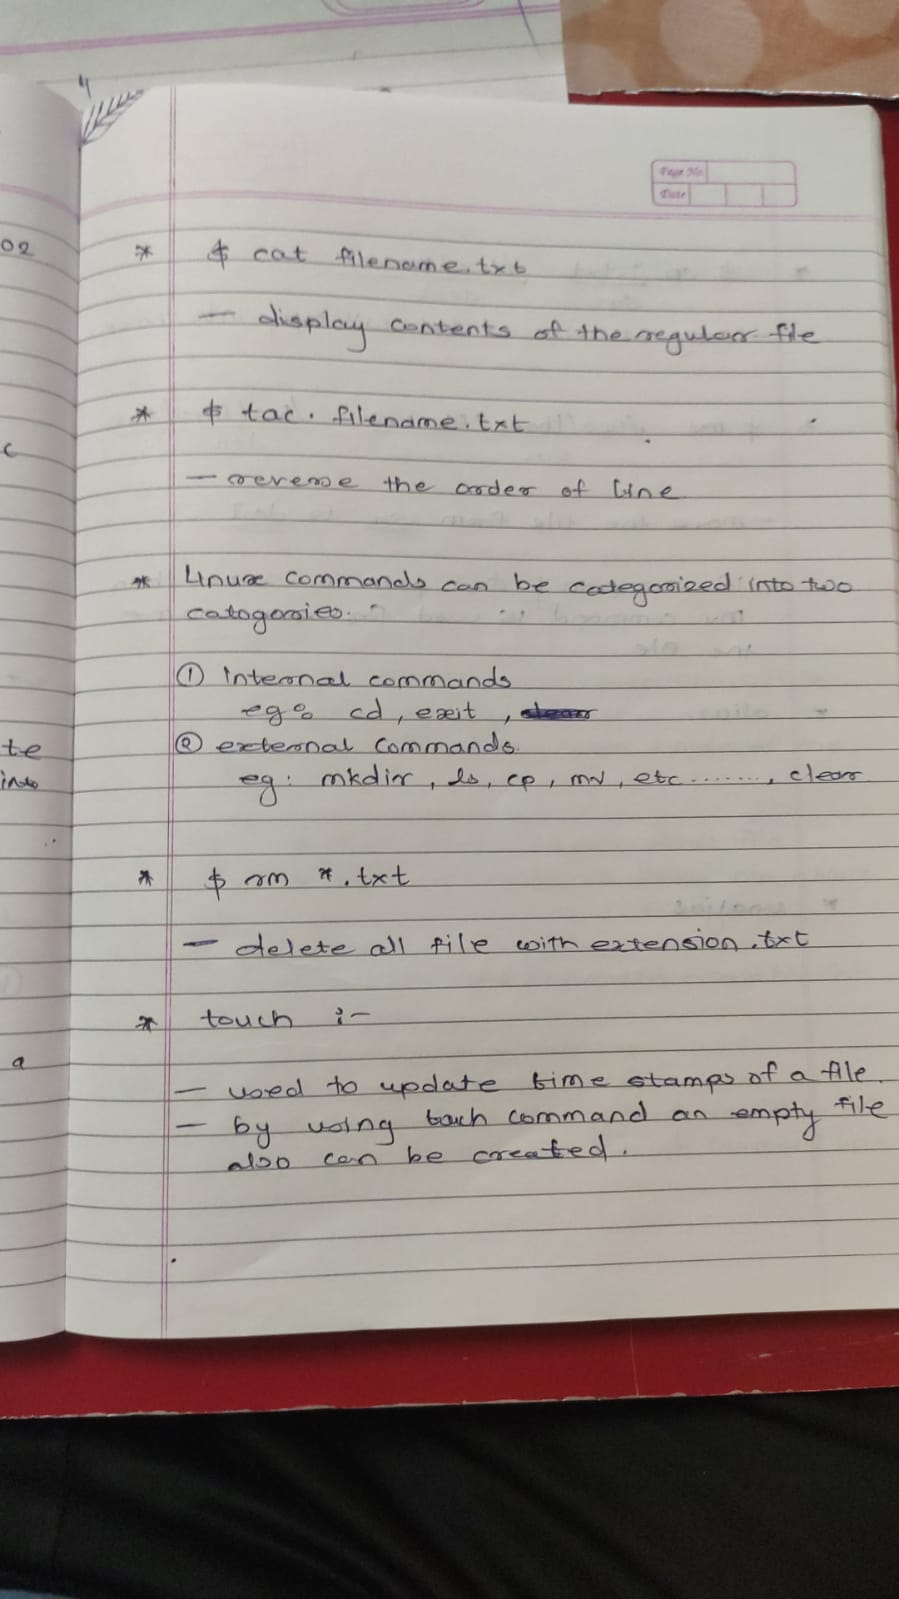 Page No
Date
02
* $ cat filename.txt
— display contents of the regular file
* $ tac. filename.txt
c
— reverse the order of line
* Linux commands can be categorized into two
catogories.
① Internal commands
eg: cd, exit,
te
② external commands.
into
eg: mkdir, ls, cp, mv, etc ......., clear
* $ rm *.txt
— delete all file with extension .txt
* touch :-
a
— used to update time stamps of a file.
— by using touch command an empty file
also can be created.